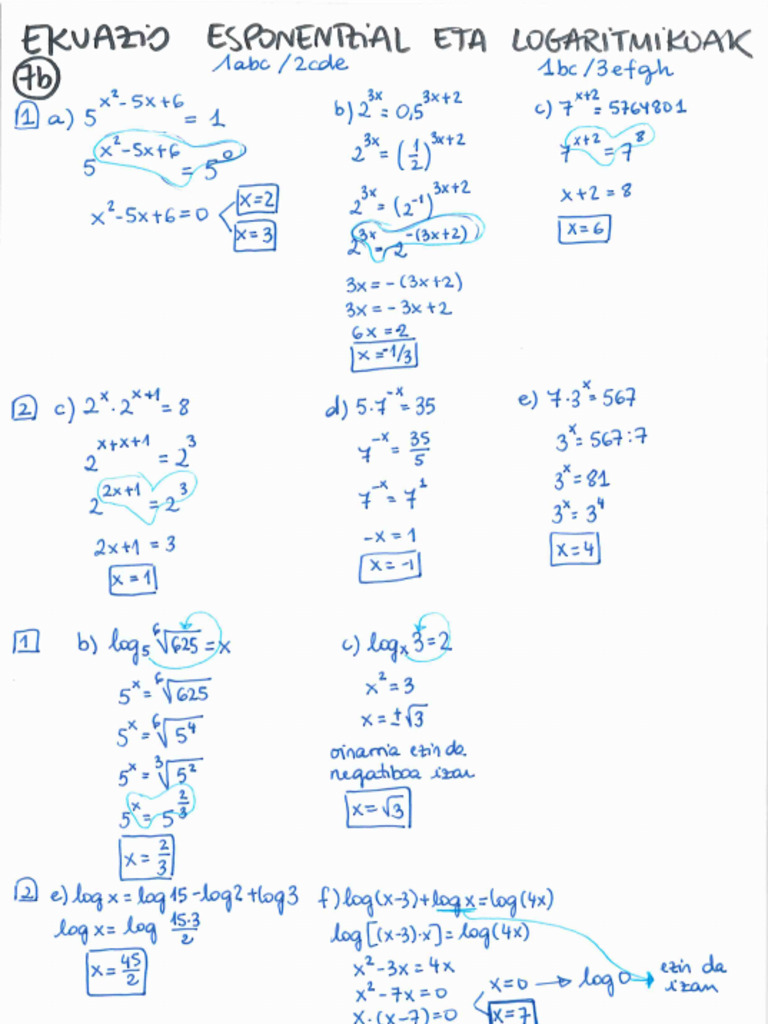 EKUAZIO ESPONENTZIAL ETA LOGARITMIKOAK
7b 1abc/2cde 1bc/3efgh
1 a) 5^(x²-5x+6) = 1
5^(x²-5x+6) = 5^0
x²-5x+6=0 x=2
x=3
b) 2^(3x) = 0,5^(3x+2)
2^(3x) = (1/2)^(3x+2)
2^(3x) = (2^(-1))^(3x+2)
2^(3x) = 2^(-(3x+2))
3x = -(3x+2)
3x = -3x+2
6x = -2
x = -1/3
c) 7^(x+2) = 5764801
7^(x+2) = 7^8
x+2 = 8
x=6
2 c) 2^x · 2^(x+1) = 8
2^(x+x+1) = 2^3
2^(2x+1) = 2^3
2x+1 = 3
x = 1
d) 5·7^(-x) = 35
7^(-x) = 35/5
7^(-x) = 7^1
-x = 1
x = -1
e) 7·3^x = 567
3^x = 567:7
3^x = 81
3^x = 3^4
x=4
1 b) log₅ ⁶√625 = x
5^x = ⁶√625
5^x = ⁶√5⁴
5^x = ³√5²
5^x = 5^(2/3)
x = 2/3
c) logₓ 3 = 2
x² = 3
x = ±√3
oinarria ezin da
negatiboa izan
x = √3
2 e) log x = log 15 - log 2 + log 3
log x = log 15·3/2
x = 45/2
f) log(x-3) + log x = log(4x)
log[(x-3)·x] = log(4x)
x²-3x = 4x
x²-7x = 0
x·(x-7)=0
x=0 → log 0 → ezin da
izan
x=7